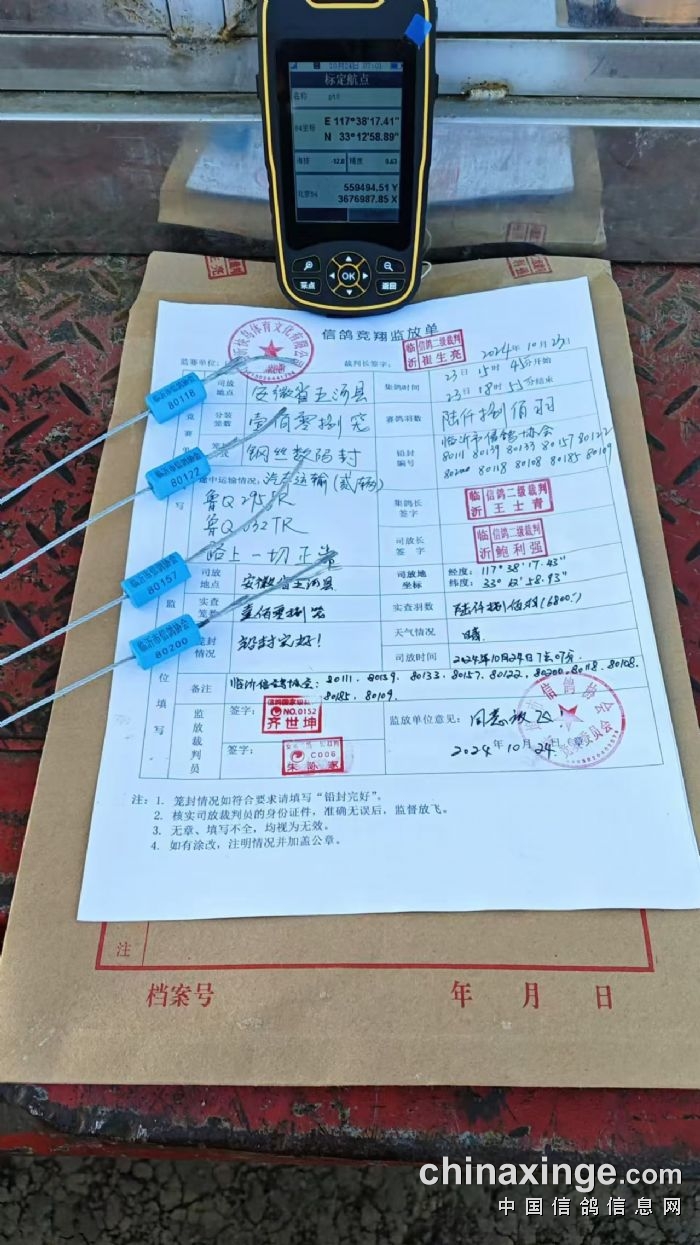 标定航点
名称 pt1
84坐标 E 117°38'17.41"
N 33°12'58.89"
海拔 -12.8 精度 0.63
北京54 559494.51 Y
3676987.85 X
采点 OK 返回
信鸽竞翔监放单
监赛单位: 沂快鸟体育文化有限公司
裁判长签字: 临沂 信鸽二级裁判 崔生亮
2024年10月23日
司放地点 安徽省五河县
集鸽时间 23日15时45分开始
23日18时55分结束
分装笼数 壹佰零捌笼
赛鸽羽数 陆仟捌佰羽
钢丝数码封
铅封编号 临沂市信鸽协会
80111 80139 80133 80157 80122
80200 80118 80108 80185 80109
途中运输情况: 汽车运输(贰辆)
鲁Q
鲁Q
路上一切正常
集鸽长签字 临沂 信鸽二级裁判 王士青
司放长签字 临沂 信鸽二级裁判 鲍利强
司放地点 安徽省五河县
司放地坐标 经度: 117°38'17.43"
纬度: 33°12'58.93"
实查笼数 壹佰零捌笼
实查羽数 陆仟捌佰羽(6800)
笼封情况 铅封完好!
天气情况 晴
司放时间 2024年10月24日7点07分
备注 临沂信鸽协会: 80111、80139、80133、80157、80122、80200、80118、80108、
80185、80109、
监放裁判员
签字: 信鸽国家级裁判 NO.0152 齐世坤
签字: C006
监放单位意见: 同意放飞
2024年10月24日
注: 1. 笼封情况如符合要求请填写“铅封完好”。
2. 核实司放裁判员的身份证件,准确无误后,监督放飞。
3. 无章、填写不全,均视为无效。
4. 如有涂改,注明情况并加盖公章。
临沂市信鸽协会 80118
临沂市信鸽协会 80122
临沂市信鸽协会 80157
临沂市信鸽协会 80200
注
档案号 年 月 日
chinaxinge.com
中国信鸽信息网